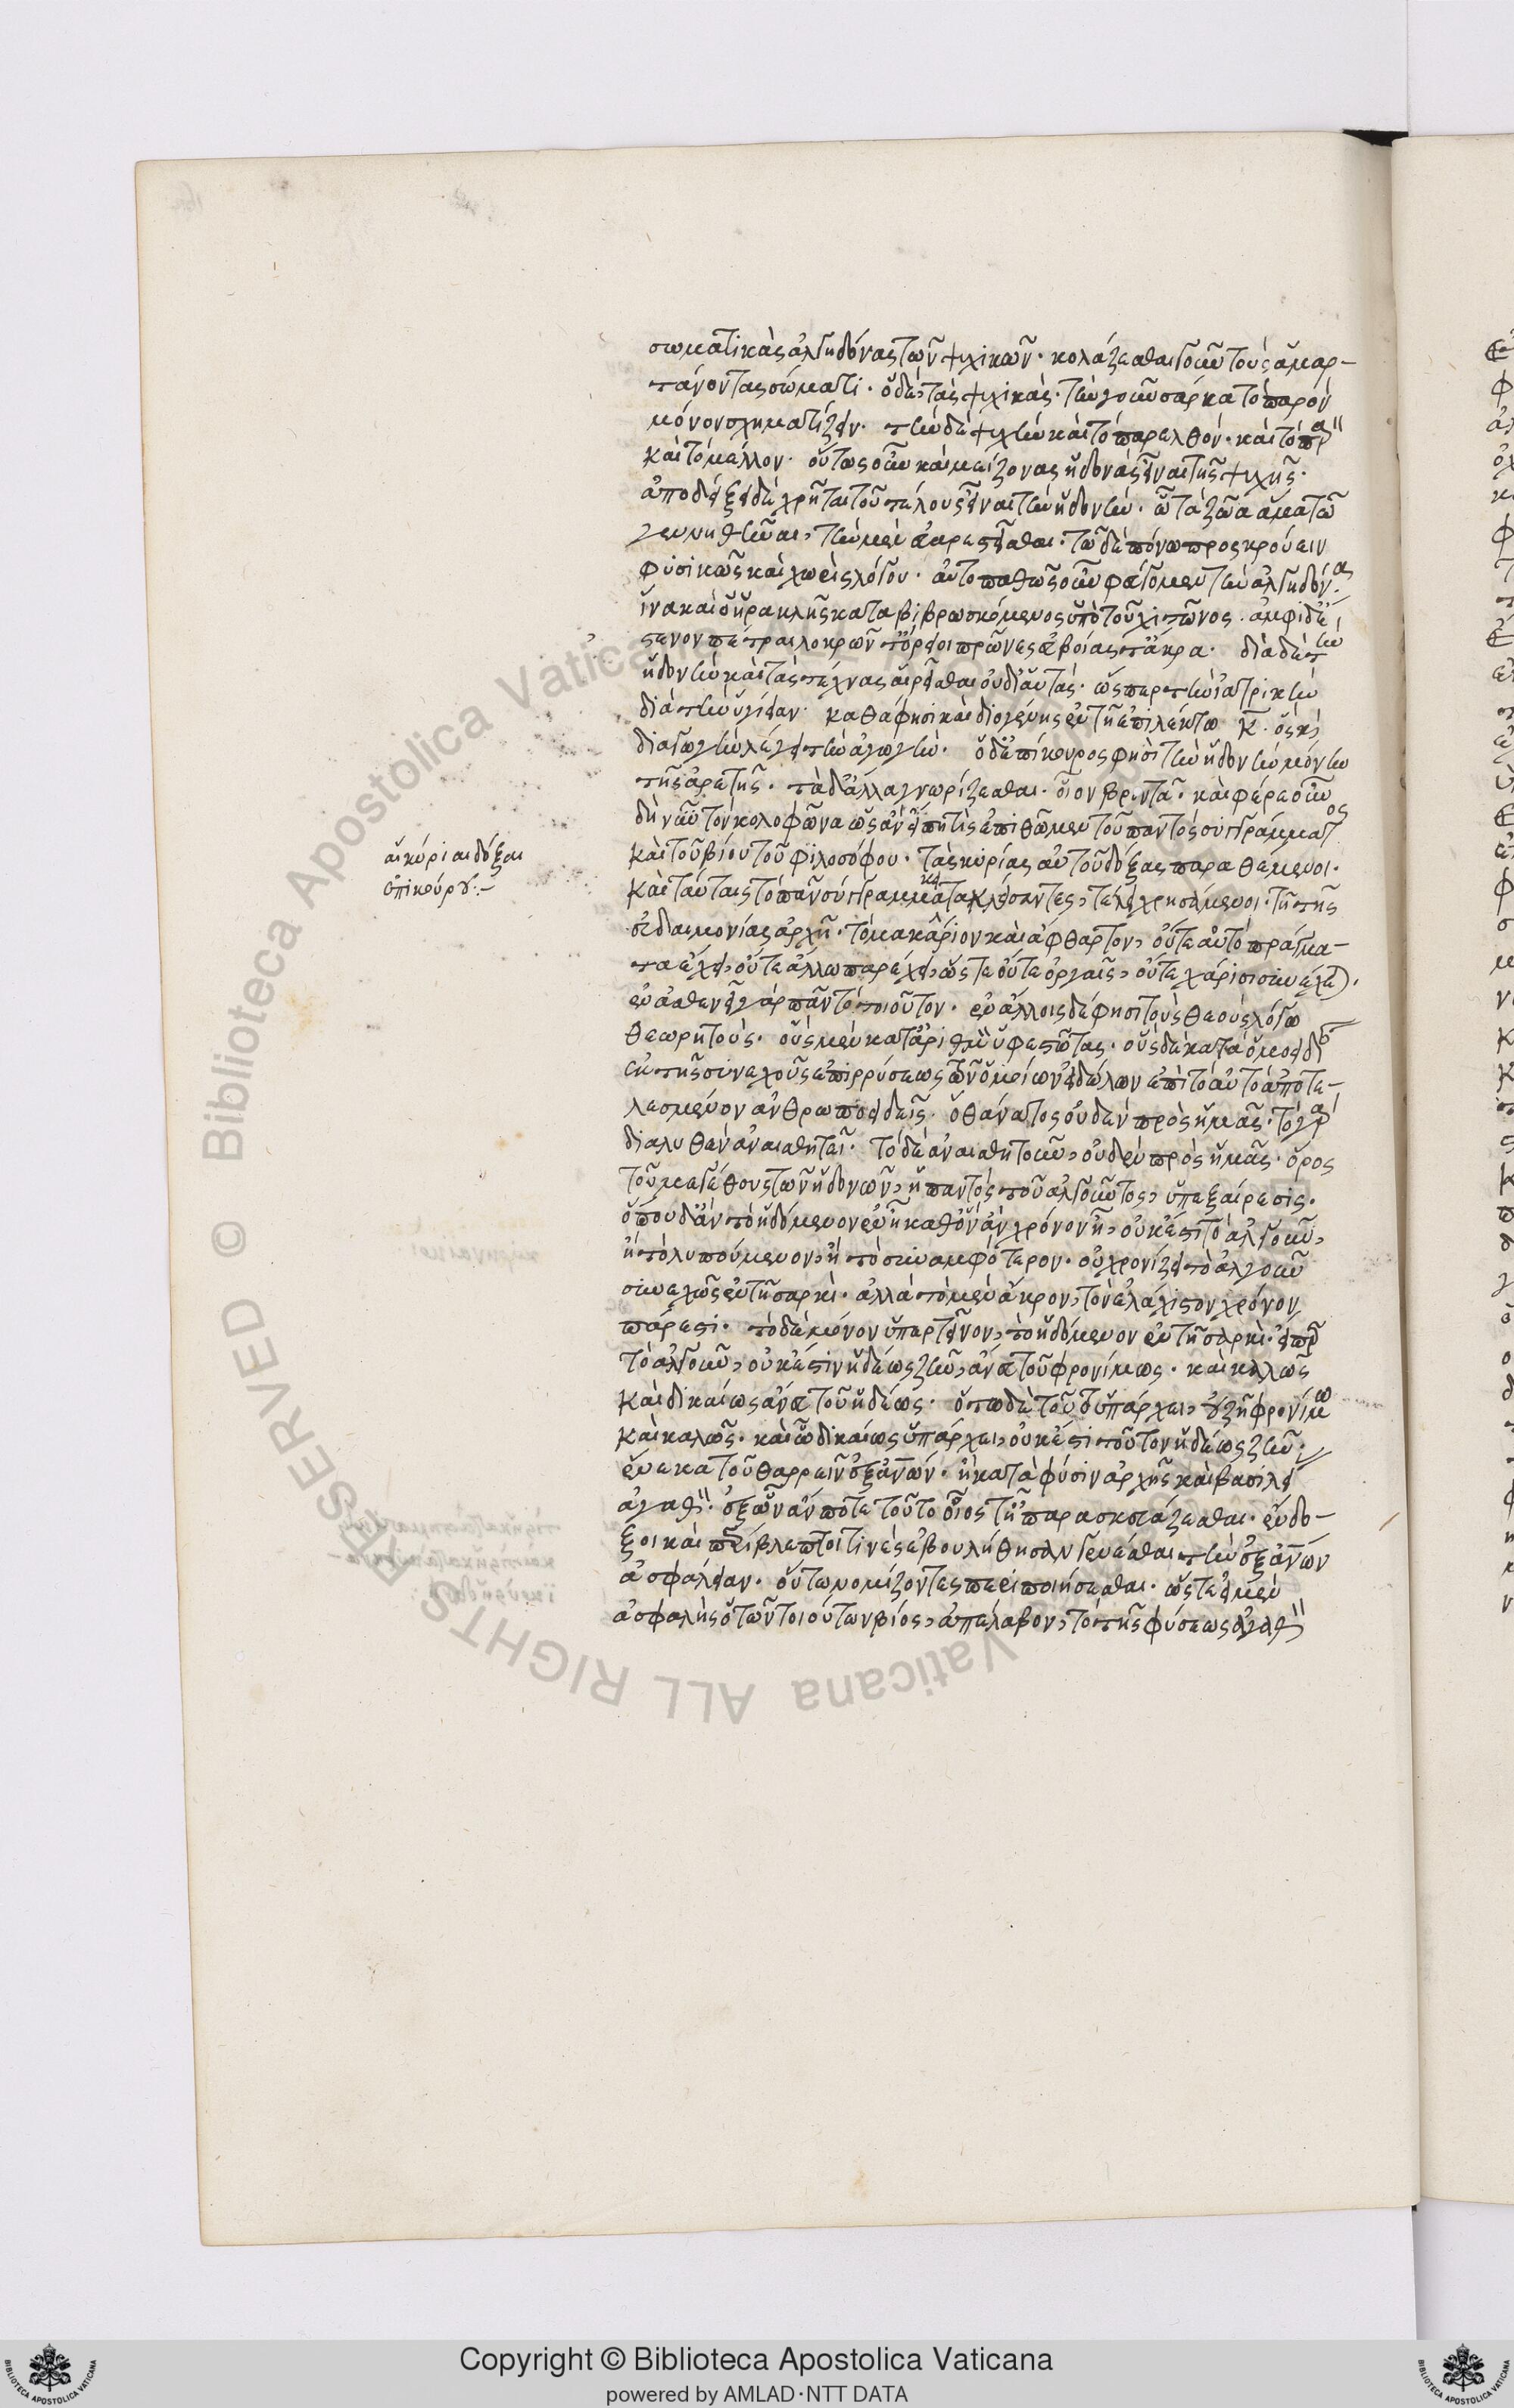 σωματικὰς ἀλγηδόνας τῶν ψυχικῶν· κολάζεσθαι γοῦν τοὺς ἁμαρ-
τάνοντας σώματι· ὁ δὲ, τὰς ψυχικὰς· τὴν γοῦν σάρκα τὸ παρὸν
μόνον χειμάζειν· τὴν δὲ ψυχὴν καὶ τὸ παρελθόν· καὶ τὸ παρὸν
καὶ τὸ μέλλον· οὕτως οὖν καὶ μείζονας ἡδονὰς εἶναι τῆς ψυχῆς·
ἀποδείξει δὲ χρῆται τοῦ τέλους εἶναι τὴν ἡδονὴν· ᾧ τὰ ζῶα ἅμα τῶ
γεννηθῆναι, τῆ μὲν εὐαρεστεῖσθαι· τῶ δὲ πόνω προσκρούειν
φυσικῶς καὶ χωρὶς λόγου· αὐτοπαθῶς οὖν φεύγομεν τὴν ἀλγηδόνα·
ἵνα καὶ ὁ ἡρακλῆς καταβιβρωσκόμενος ὑπὸ τοῦ χιτῶνος· ἀμφὶ δὲ
στένον πέτραι λοκρῶν τ' ὄρειοι πρῶνες εὐβοίας τ' ἄκρα· διὰ δὲ τὴν
ἡδονὴν καὶ τὰς τέχνας αἱρεῖσθαι οὐ δι' αὐτάς· ὥσπερ τὴν ἰατρικὴν
διὰ τὴν ὑγίειαν· καθά φησι καὶ διογένης ἐν τῆ ἐπιλέκτω κ̅· ὃς καὶ
διαγωγὴν λέγει τὴν ἀγωγὴν· ὁ δ' ἐπίκουρος φησὶ τὴν ἡδονὴν μόνην
τῆς ἀρετῆς· τὰ δ' ἄλλα χωρίζεσθαι· οἷον βρωτὰ· καὶ φέρε οὖν
δὴ νῦν τὸν κολοφῶνα ὡς ἂν εἴπη τις ἐπιθῶμεν τοῦ παντὸς συγγράμματος
καὶ τοῦ βίου τοῦ φιλοσόφου· τὰς κυρίας αὐτοῦ δόξας παραθέμενοι·
καὶ ταύταις τὸ πᾶν σύγγραμμα κατακλείσαντες, τέλει χρησάμενοι· τῆ τῆς
εὐδαιμονίας ἀρχῆ· τὸ μακάριον καὶ ἄφθαρτον, οὔτε αὐτὸ πράγμα-
τα ἔχει, οὔτε ἄλλω παρέχει, ὥστε οὔτε ὀργαῖς, οὔτε χάρισι συνέχεται·
ἐν ἀσθενεῖ γὰρ πᾶν τὸ τοιοῦτον· ἐν ἄλλοις δέ φησι τοὺς θεοὺς λόγω
θεωρητοὺς· οὓς μὲν κατ' ἀριθμὸν ὑφεστῶτας· οὓς δὲ κατὰ ὁμοείδιαν
ἐκ τῆς συνεχοῦς ἐπιρρύσεως τῶν ὁμοίων εἰδώλων ἐπὶ τὸ αὐτὸ ἀποτε-
λεσμένον ἀνθρωποειδεῖς· ὁ θάνατος οὐδὲν πρὸς ἡμᾶς· τὸ γὰρ
διαλυθὲν ἀναισθητεῖ· τὸ δὲ ἀναισθητοῦν, οὐδὲν πρὸς ἡμᾶς· ὅρος
τοῦ μεγέθους τῶν ἡδονῶν, ἡ παντὸς τοῦ ἀλγοῦντος, ὑπεξαίρεσις·
ὅπου δ' ἂν τὸ ἡδόμενον ἐνῆ καθ' ὃν ἂν χρόνον ἦ, οὐκ ἔστι τὸ ἀλγοῦν,
ἢ τὸ λυπούμενον, ἢ τὸ συναμφότερον· οὐ χρονίζει τὸ ἀλγοῦν
συνεχῶς ἐν τῆ σαρκὶ· ἀλλὰ τὸ μὲν ἄκρον, τὸν ἐλάχιστον χρόνον
πάρεστι· τὸ δὲ μόνον ὑπερτεῖνον, τὸ ἡδόμενον ἐν τῆ σαρκὶ·
τὸ ἀλγοῦν, οὐκ ἔστιν ἡδέως ζῆν, ἄνευ τοῦ φρονίμως· καὶ καλῶς
καὶ δικαίως ἄνευ τοῦ ἡδέως· ὅτω δὲ τοῦθ' ὑπάρχει, οὐ ζῆ φρονίμως
καὶ καλῶς· καὶ ᾧ δικαίως ὑπάρχει, οὐκ ἔστι τοῦτον ἡδέως ζῆν·
ἕνεκα τοῦ θαρρεῖν ἐξ ἀνῶν· ἦ κατὰ φύσιν ἀρχῆς καὶ βασιλεί
ἀγαθὸν· ἐξ ὧν ἄν ποτε τοῦτο οἷός τ' ἦ παρασκευάζεσθαι· ἔνδο-
ξοι καὶ περίβλεπτοί τινες ἐβουλήθησαν γενέσθαι τὴν ἐξ ἀνῶν
ἀσφάλειαν· οὕτω νομίζοντες περιποιήσεσθαι· ὥστε εἰ μὲν
ἀσφαλὴς ὁ τῶν τοιούτων βίος, ἀπέλαβον, τὸ τῆς φύσεως ἀγαθόν
αἱ κύριαι δόξαι
ἐπικούρου:-
Copyright © Biblioteca Apostolica Vaticana
powered by AMLAD·NTT DATA